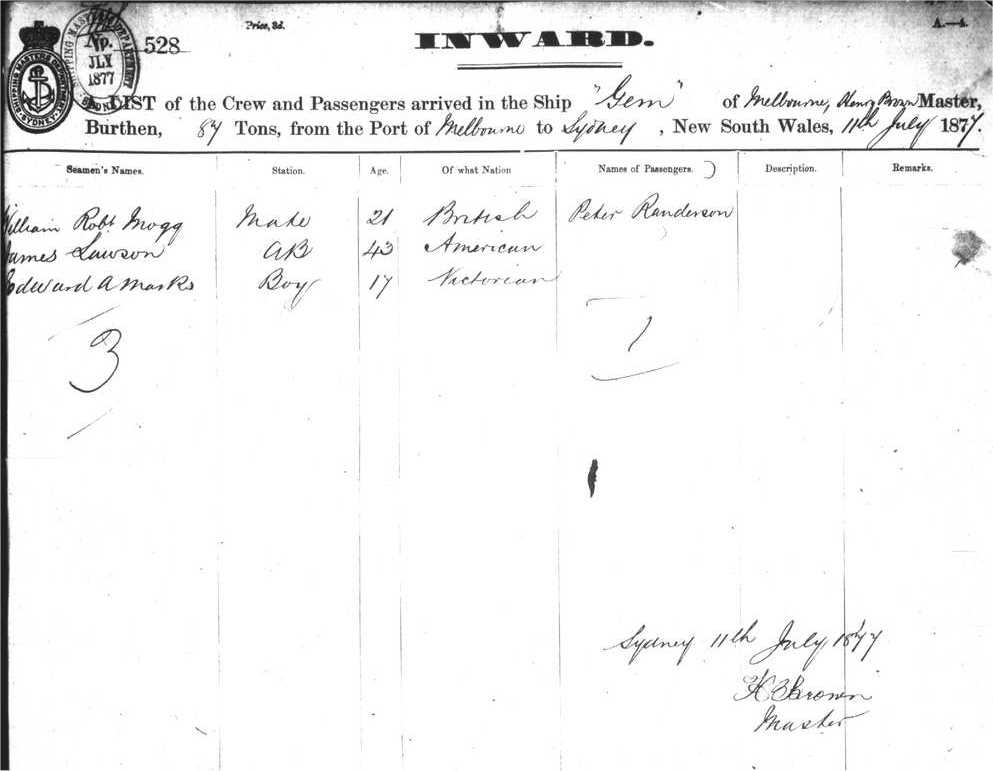 Price, 3d.
A.—4.
528
JLY
1877
INWARD.
A LIST of the Crew and Passengers arrived in the Ship "Gem" of Melbourne, Henry Brown Master,
Burthen, 87 Tons, from the Port of Melbourne to Sydney, New South Wales, 11th July 1877.
Seamen's Names. Station. Age. Of what Nation Names of Passengers. Description. Remarks.
William Robt Mogg Mate 21 British Peter Randerson
James Lawson AB 43 American
Edward A Marks Boy 17 Victorian
3 1
Sydney 11th July 1877
H Brown
Master